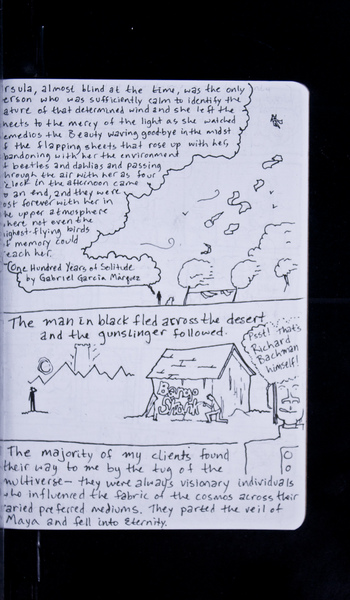 rsula, almost blind at the time, was the only
erson who was sufficiently calm to identify the
ature of that determined wind and she left the
heets to the mercy of the light as she watched
emedios the Beauty waving goodbye in the midst
f the flapping sheets that rose up with her,
bandoning with her the environment
f beetles and dahlias and passing
hrough the air with her as four
clock in the afternoon came
o an end, and they were
ost forever with her in
he upper atmosphere
here not even the
ighest-flying birds
f memory could
each her.
One Hundred Years of Solitude
by Gabriel García Márquez
The man in black fled across the desert
and the gunslinger followed.
Psst! That's
Richard
Bachman
himself!
The majority of my clients found
their way to me by the tug of the
multiverse— they were always visionary individuals
who influenced the fabric of the cosmos across their
varied preferred mediums. They parted the veil of
Maya and fell into Eternity.